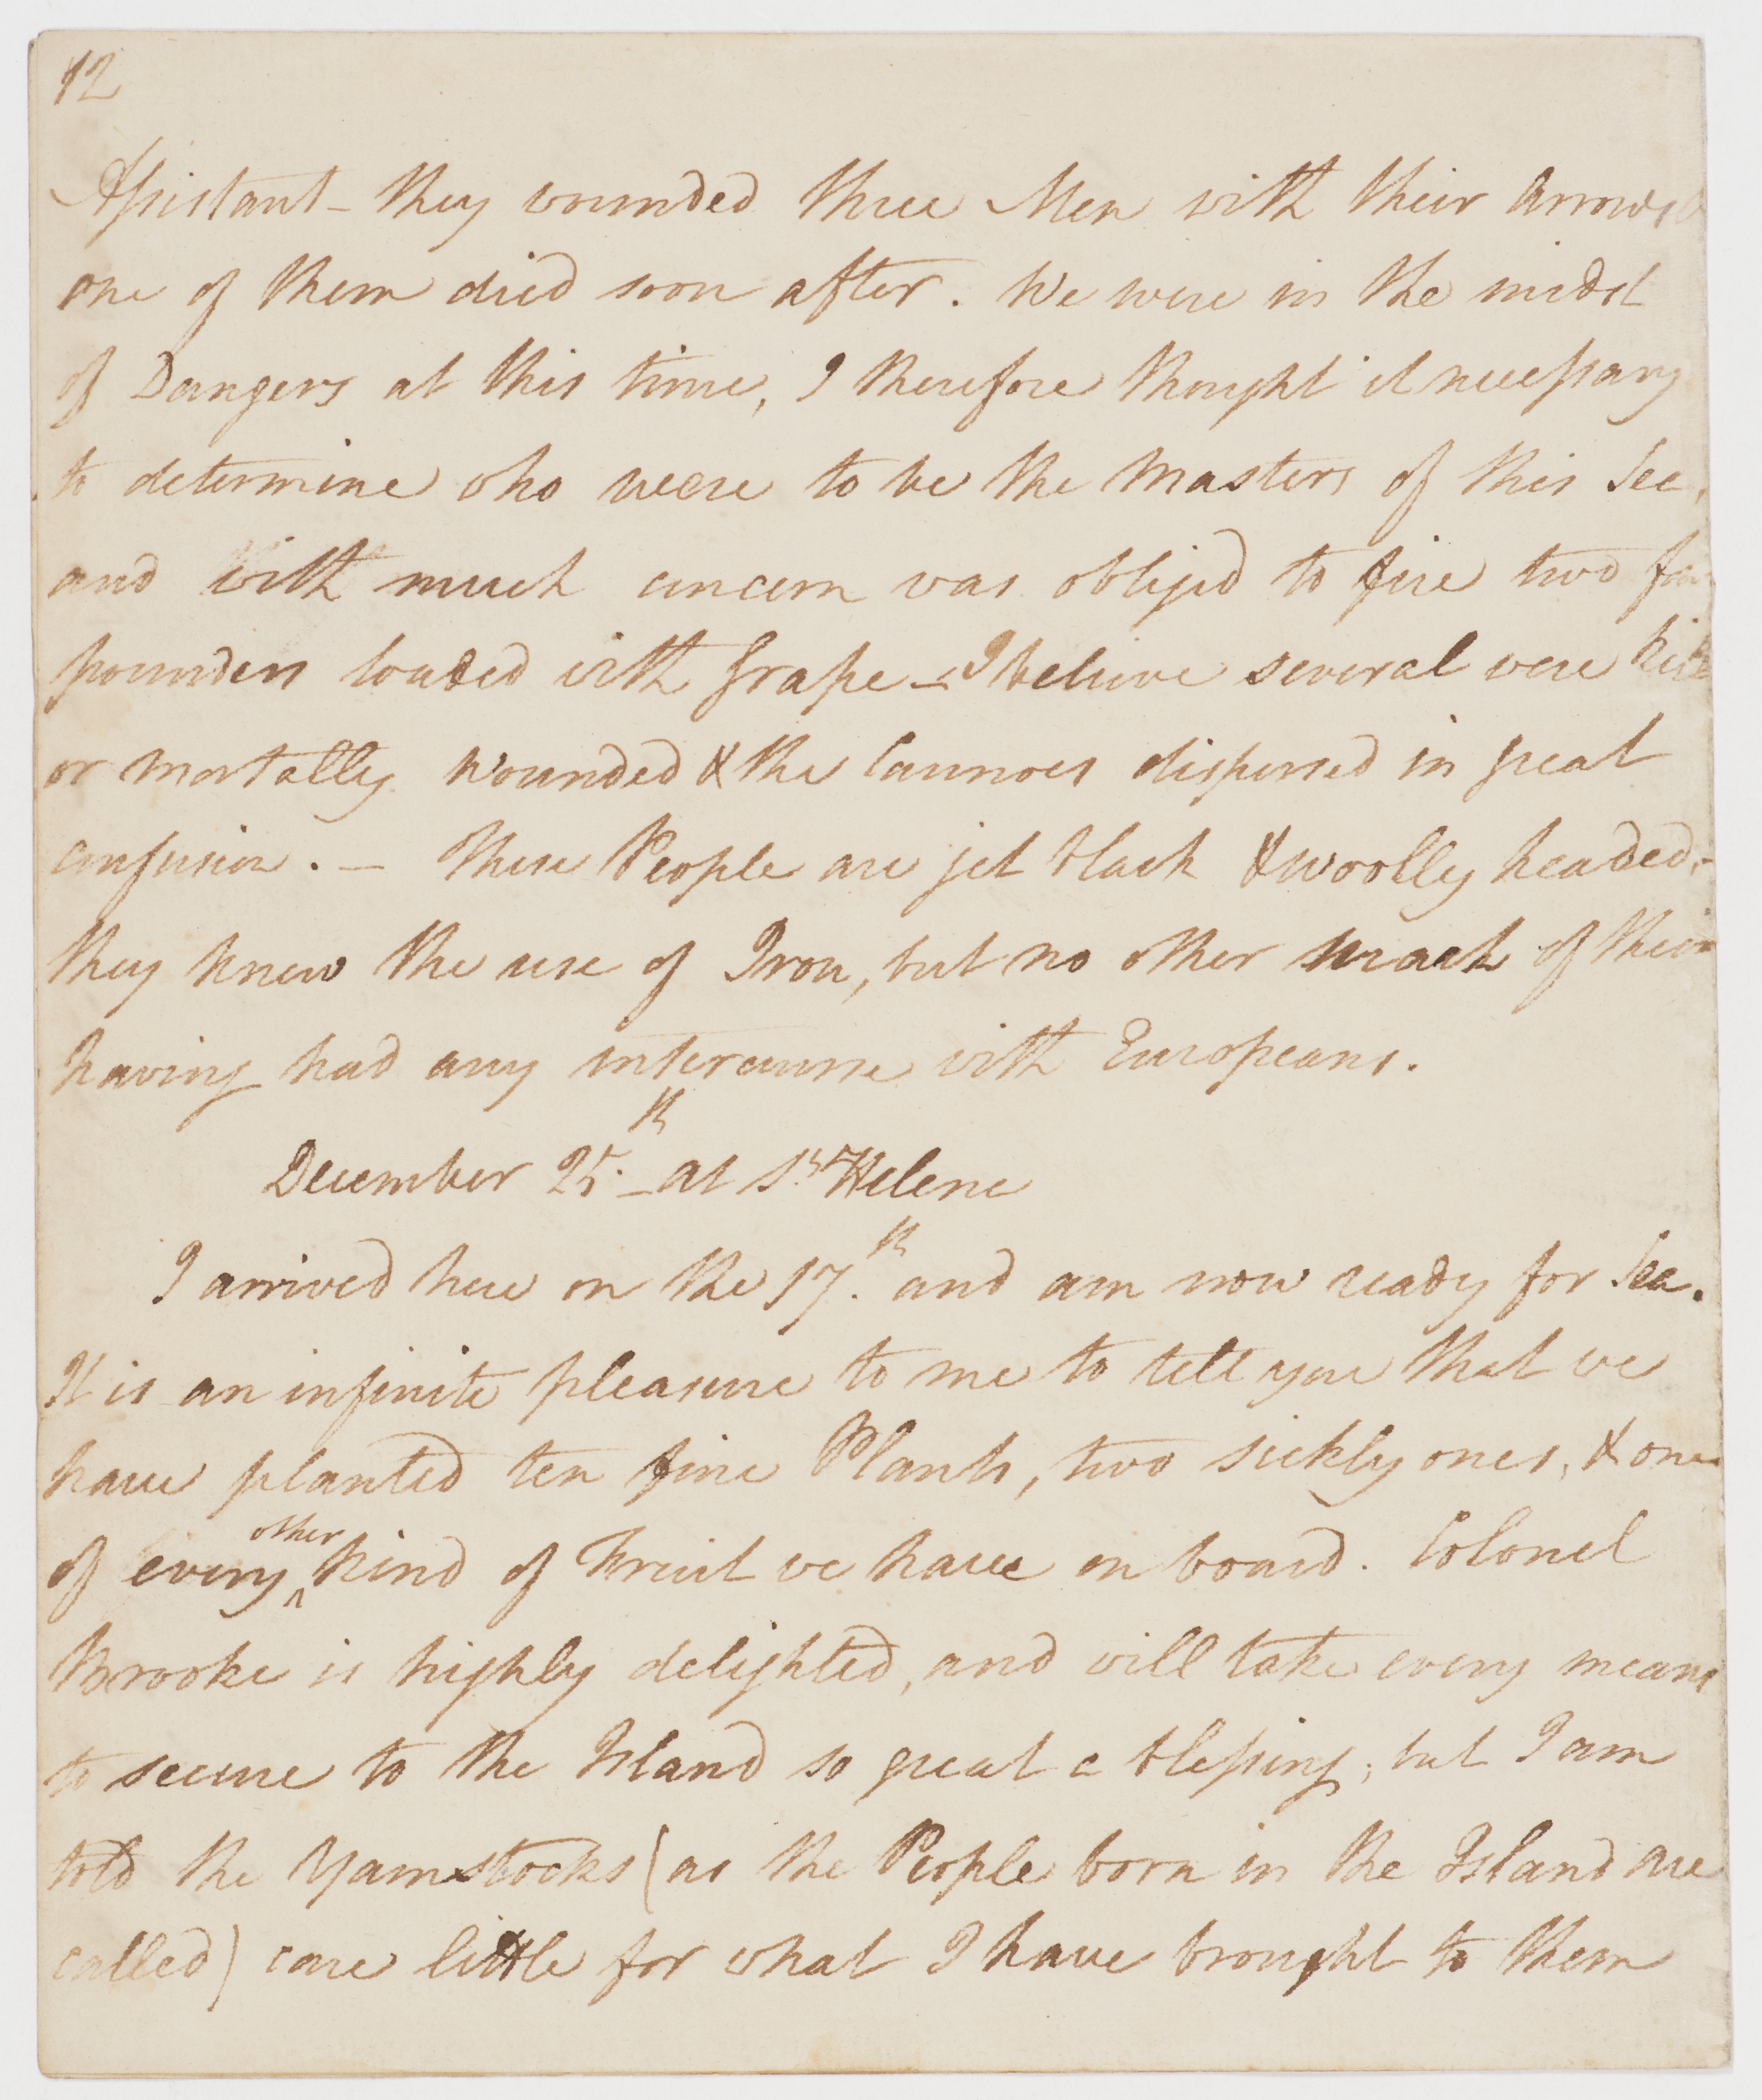 12
Assistant – they wounded three Men with their Arrows &
one of them died soon after. We were in the midst
of Dangers at this time, I therefore thought it necessary
to determine who were to be the Masters of this Sea,
and with much concern was obliged to fire two four
pounders loaded with Grape – I believe several were kill
or mortally wounded & the Cannoes dispersed in great
confusion. – These People are jet black & woolly headed, –
they knew the use of Iron, but no other mark of their
having had any intercourse with Europeans.
December 25th – at St Helene
I arrived here on the 17th and am now ready for Sea.
It is an infinite pleasure to me to tell you that we
have planted ten fine Plants, two sickly ones, & one
of every other kind of Fruit we have on board. Colonel
Brooke is highly delighted, and will take every means
to secure to the Island so great a blessing, but I am
told the Yamstocks (as the People born in the Island are
called) care little for what I have brought to them